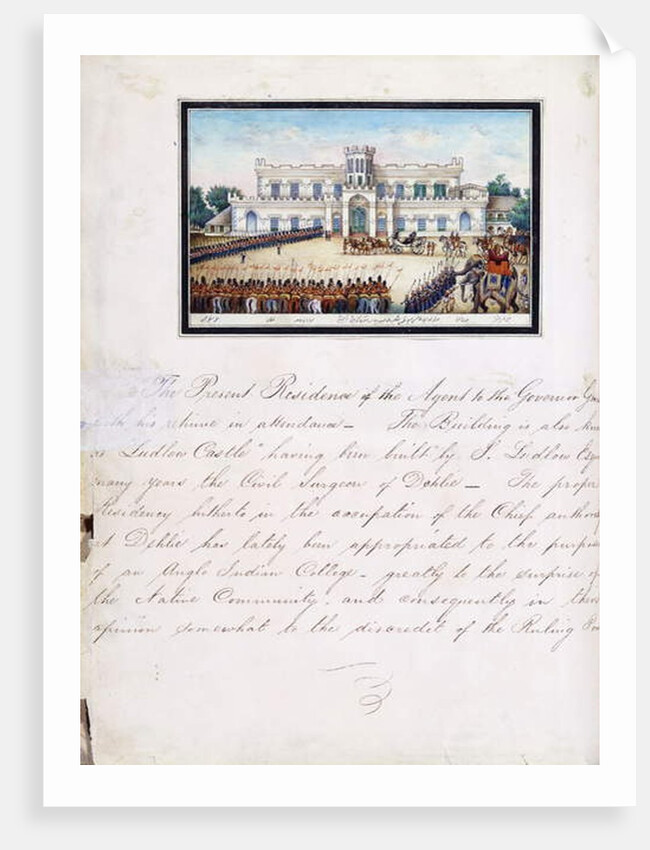 The Present Residence of the Agent to the Governor Gen
with his retinue in attendance – The Building is also kno
as "Ludlow Castle" having been built by S. Ludlow Esq
many years the Civil Surgeon of Dehlie – The proper
Residency hitherto in the occupation of the Chief author
at Dehlie has lately been appropriated to the purpose
of an Anglo Indian College – greatly to the surprise of
the Native Community, and consequently in their
opinion somewhat to the discredit of the Ruling Pow